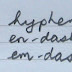 hyphen
en-das
em-das